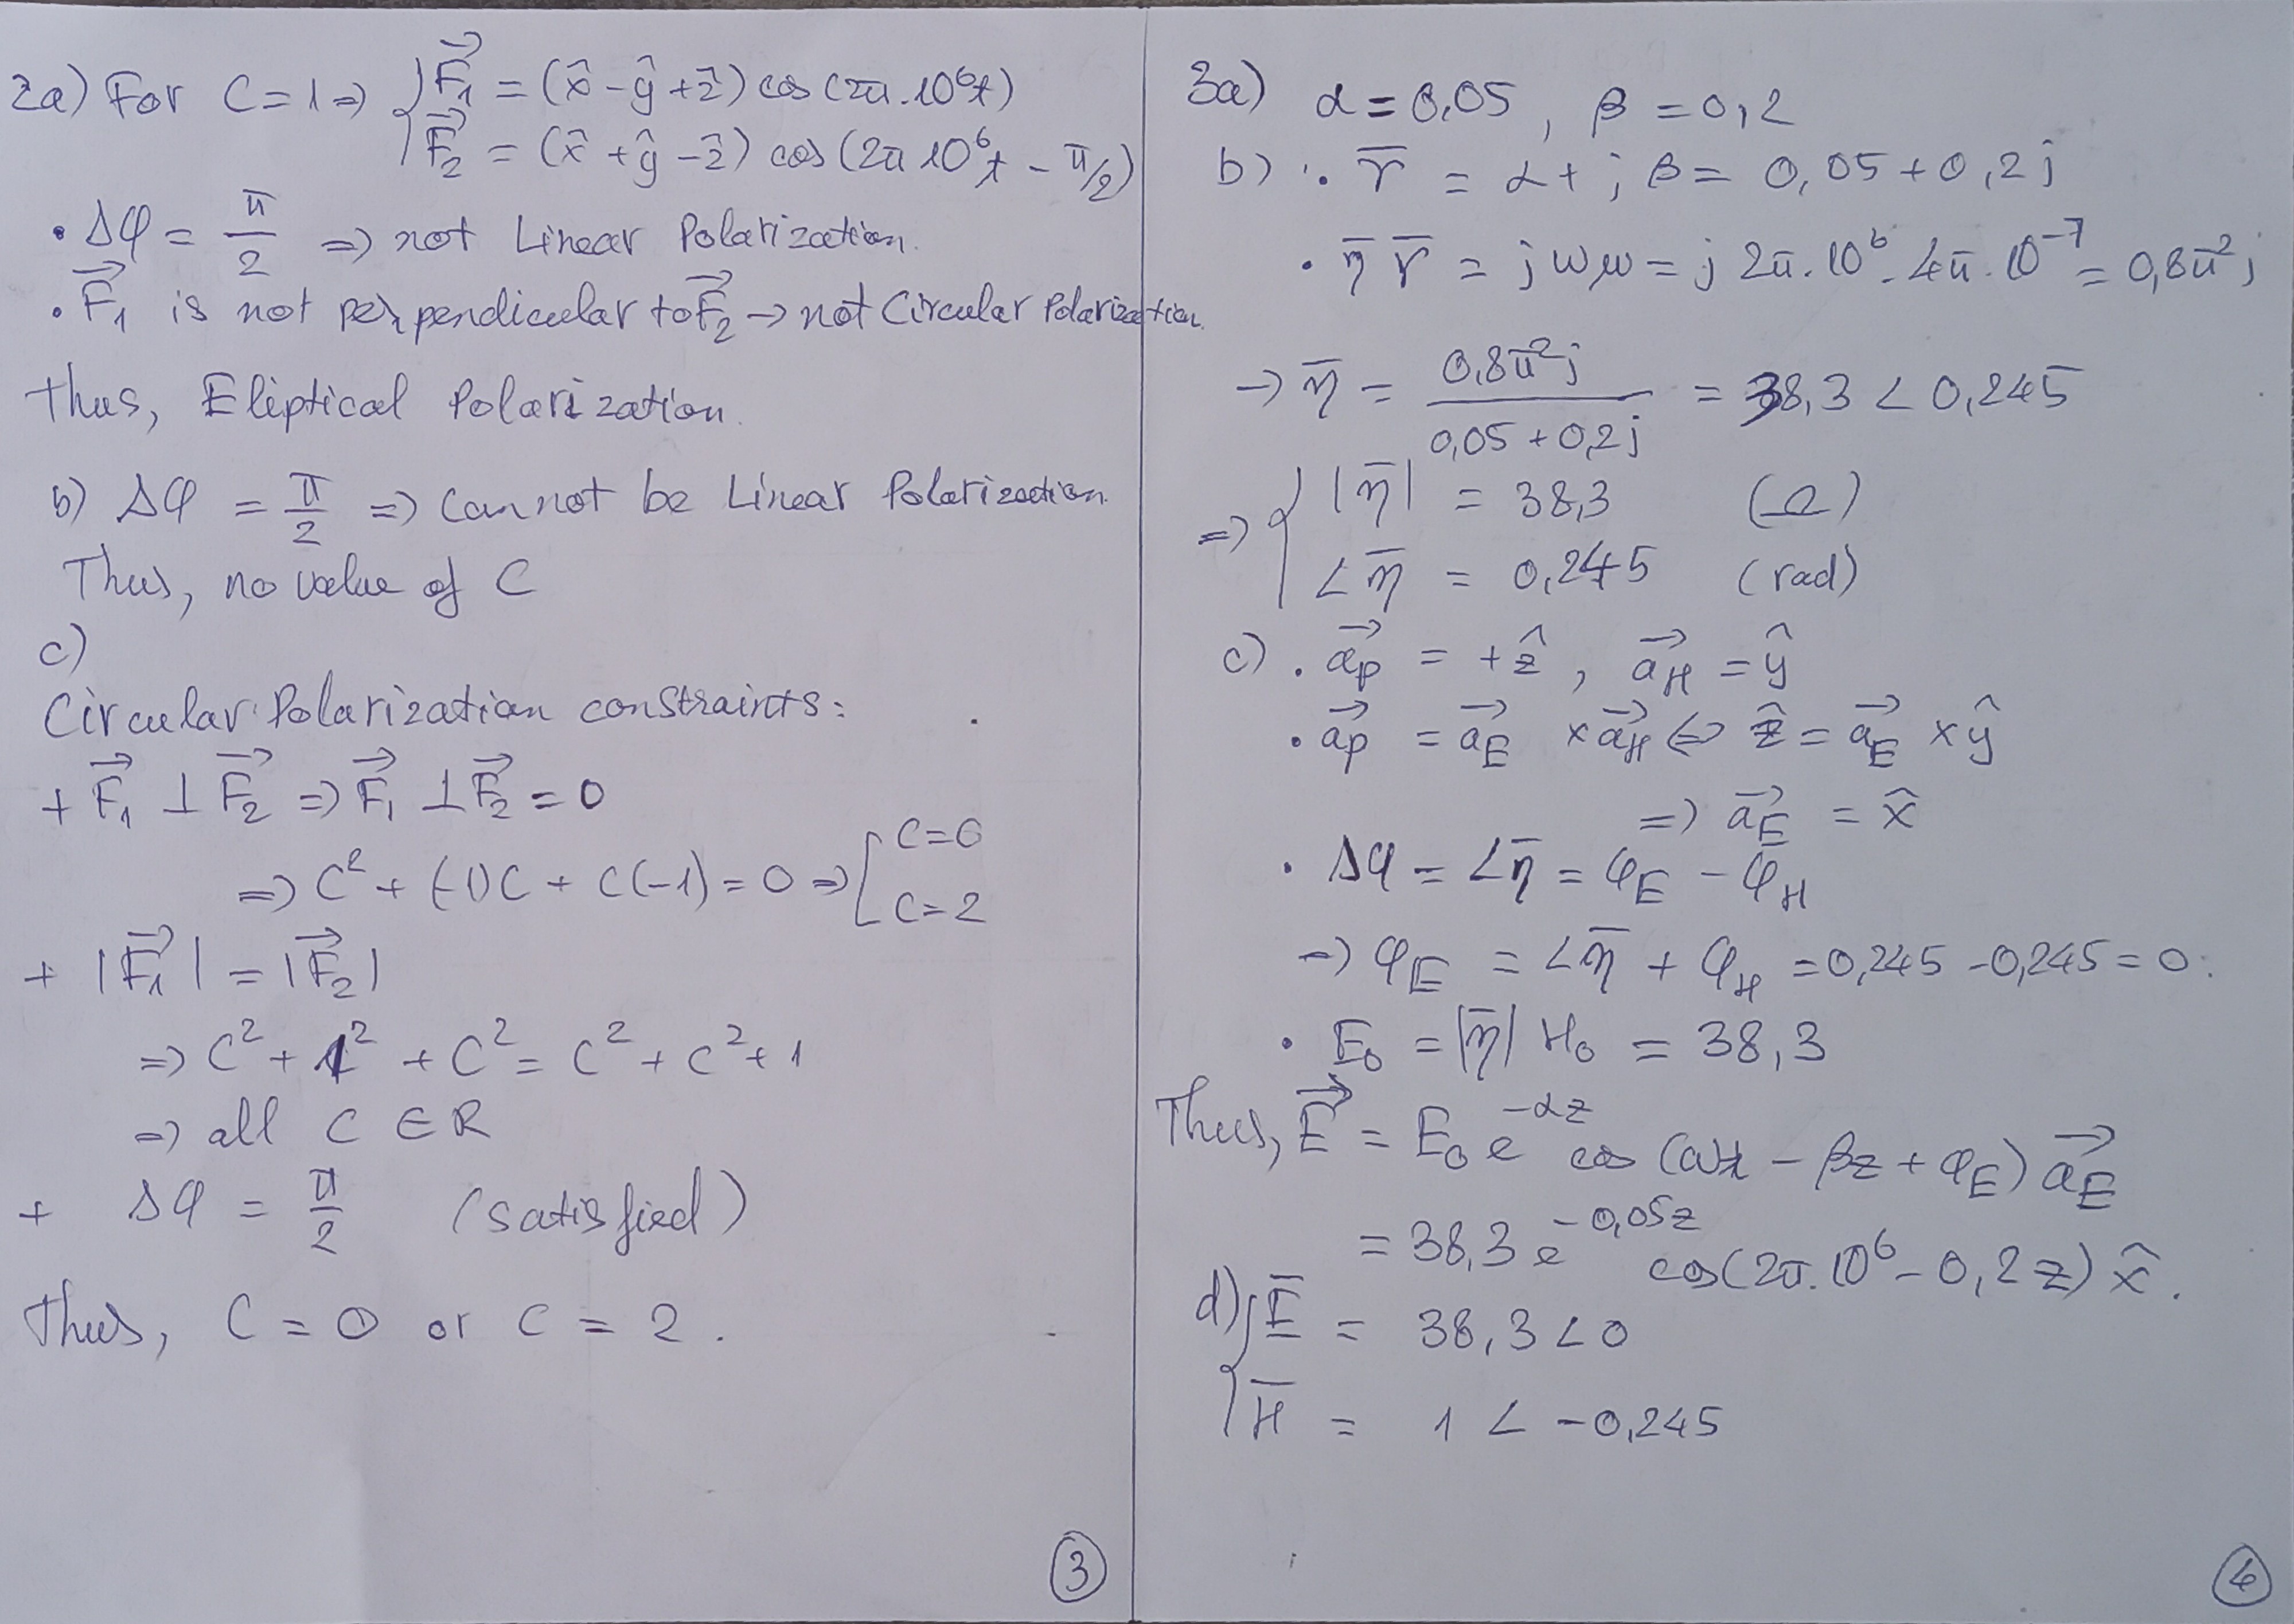 2a) For C=1 => { F₁⃗ = (x̂ - ŷ + ẑ) cos (2π.10⁶t)
F₂⃗ = (x̂ + ŷ - ẑ) cos (2π 10⁶t - π/2)
• Δφ = π/2 => not Linear Polarization.
• F₁⃗ is not perpendicular to F₂⃗ -> not Circular Polarization.
Thus, Eliptical Polarization.
b) Δφ = π/2 => Cannot be Linear Polarization.
Thus, no value of C
c)
Circular Polarization constraints:
+ F₁⃗ ⊥ F₂⃗ => F₁⃗ ⊥ F₂⃗ = 0
=> C² + (-1)C + C(-1) = 0 => [ C=0
C=2
+ |F₁⃗| = |F₂⃗|
=> C² + 1² + C² = C² + C² + 1
=> all C ∈ R
+ Δφ = π/2 (satisfied)
Thus, C = 0 or C = 2.
3
3a) α = 0,05, β = 0,2
b) • γ̅ = α + jβ = 0,05 + 0,2j
• η̅ γ̅ = jωμ = j 2π.10⁶. 4π.10⁻⁷ = 0,8π²j
-> η̅ = 0,8π²j / 0,05 + 0,2j = 38,3 ∠ 0,245
=> { |η̅| = 38,3 (Ω)
∠η̅ = 0,245 (rad)
c) • a⃗p = +ẑ, a⃗H = ŷ
• a⃗p = a⃗E × a⃗H <=> ẑ = a⃗E × ŷ
=> a⃗E = x̂
• Δφ = ∠η̅ = φE - φH
-> φE = ∠η̅ + φH = 0,245 - 0,245 = 0.
• E₀ = |η̅| H₀ = 38,3
Thus, E⃗ = E₀ e^(-αz) cos (ωt - βz + φE) a⃗E
= 38,3 e^(-0,05z) cos(2π.10⁶ - 0,2z) x̂.
d) { E̅ = 38,3 ∠ 0
H̅ = 1 ∠ -0,245
4